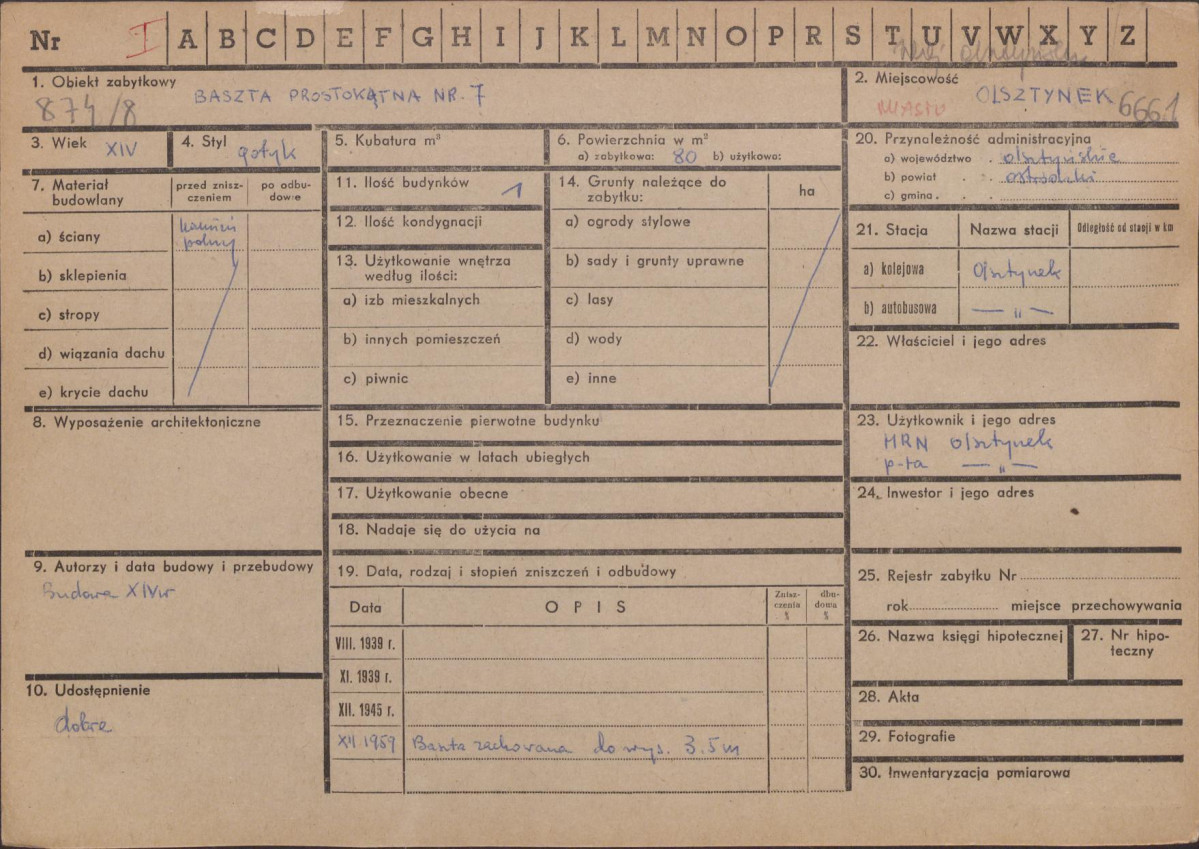 Nr I A B C D E F G H I J K L M N O P R S T U V W X Y Z
1. Obiekt zabytkowy
874/8 BASZTA PROSTOKĄTNA NR. 7
2. Miejscowość
MIASTO OLSZTYNEK 6661
3. Wiek XIV
4. Styl gotyk
5. Kubatura m³
6. Powierzchnia w m²
a) zabytkowa: 80 b) użytkowa:
7. Materiał budowlany
przed znisz-
czeniem
po odbu-
dowie
a) ściany kamień
polny
b) sklepienia
c) stropy
d) wiązania dachu
e) krycie dachu
8. Wyposażenie architektoniczne
9. Autorzy i data budowy i przebudowy
Budowa XIVw
10. Udostępnienie
dobre
11. Ilość budynków 1
12. Ilość kondygnacji
13. Użytkowanie wnętrza
według ilości:
a) izb mieszkalnych
b) innych pomieszczeń
c) piwnic
14. Grunty należące do
zabytku:
ha
a) ogrody stylowe
b) sady i grunty uprawne
c) lasy
d) wody
e) inne
15. Przeznaczenie pierwotne budynku
16. Użytkowanie w latach ubiegłych
17. Użytkowanie obecne
18. Nadaje się do użycia na
19. Data, rodzaj i stopień zniszczeń i odbudowy
Data OPIS
Znisz-
czenia
%
dbu-
dowa
%
VIII. 1939 r.
XI. 1939 r.
XII. 1945 r.
XII 1959 Baszta zachowana do wys. 3.5 m
20. Przynależność administracyjna
a) województwo . olsztyńskie
b) powiat . . ostródzki
c) gmina . . .
21. Stacja Nazwa stacji Odległość od stacji w km
a) kolejowa Olsztynek
b) autobusowa — „ —
22. Właściciel i jego adres
23. Użytkownik i jego adres
MRN Olsztynek
p-ta — „ —
24. Inwestor i jego adres
25. Rejestr zabytku Nr
rok miejsce przechowywania
26. Nazwa księgi hipotecznej
27. Nr hipo-
teczny
28. Akta
29. Fotografie
30. Inwentaryzacja pomiarowa